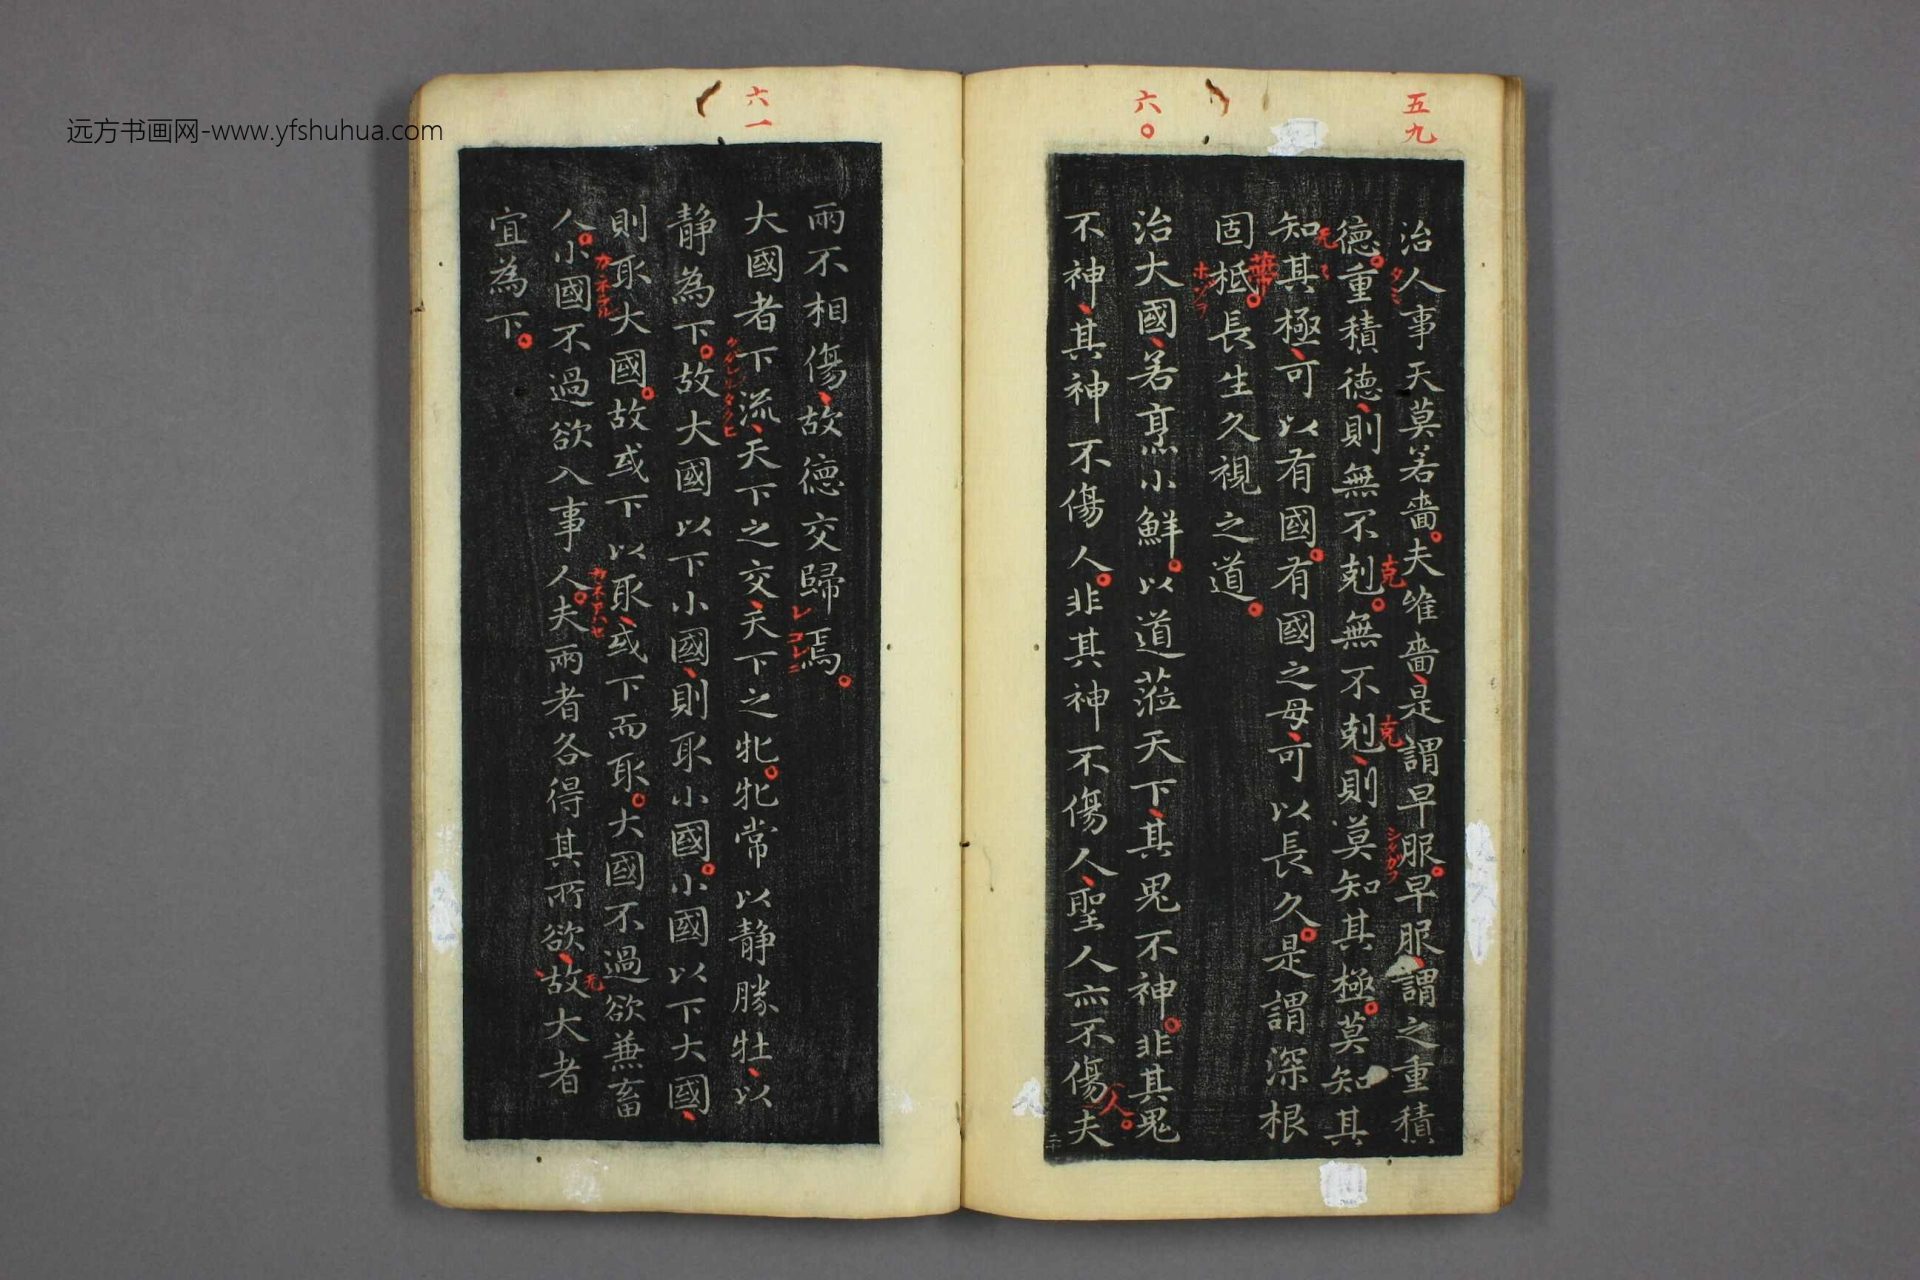 远方书画网-www.yfshuhua.com
五九
治人事天莫若嗇。夫唯嗇、是謂早服。早服、謂之重積
德。重積德、則無不剋。無不剋、則莫知其極。莫知其
克
克
知其極、可以有國。有國之母、可以長久。是謂深根
固柢。長生久視之道。
六〇
治大國、若烹小鮮。以道蒞天下、其鬼不神。非其鬼
不神、其神不傷人。非其神不傷人、聖人亦不傷夫
人。
二十
兩不相傷、故德交歸焉。
レコレニ
六一
大國者下流、天下之交、天下之牝。牝常以静勝牡、以
静為下。故大國以下小國、則取小國。小國以下大國、
則取大國。故或下以取、或下而取。大國不過欲兼畜
人。小國不過欲入事人。夫兩者各得其所欲、故大者
无
宜為下。